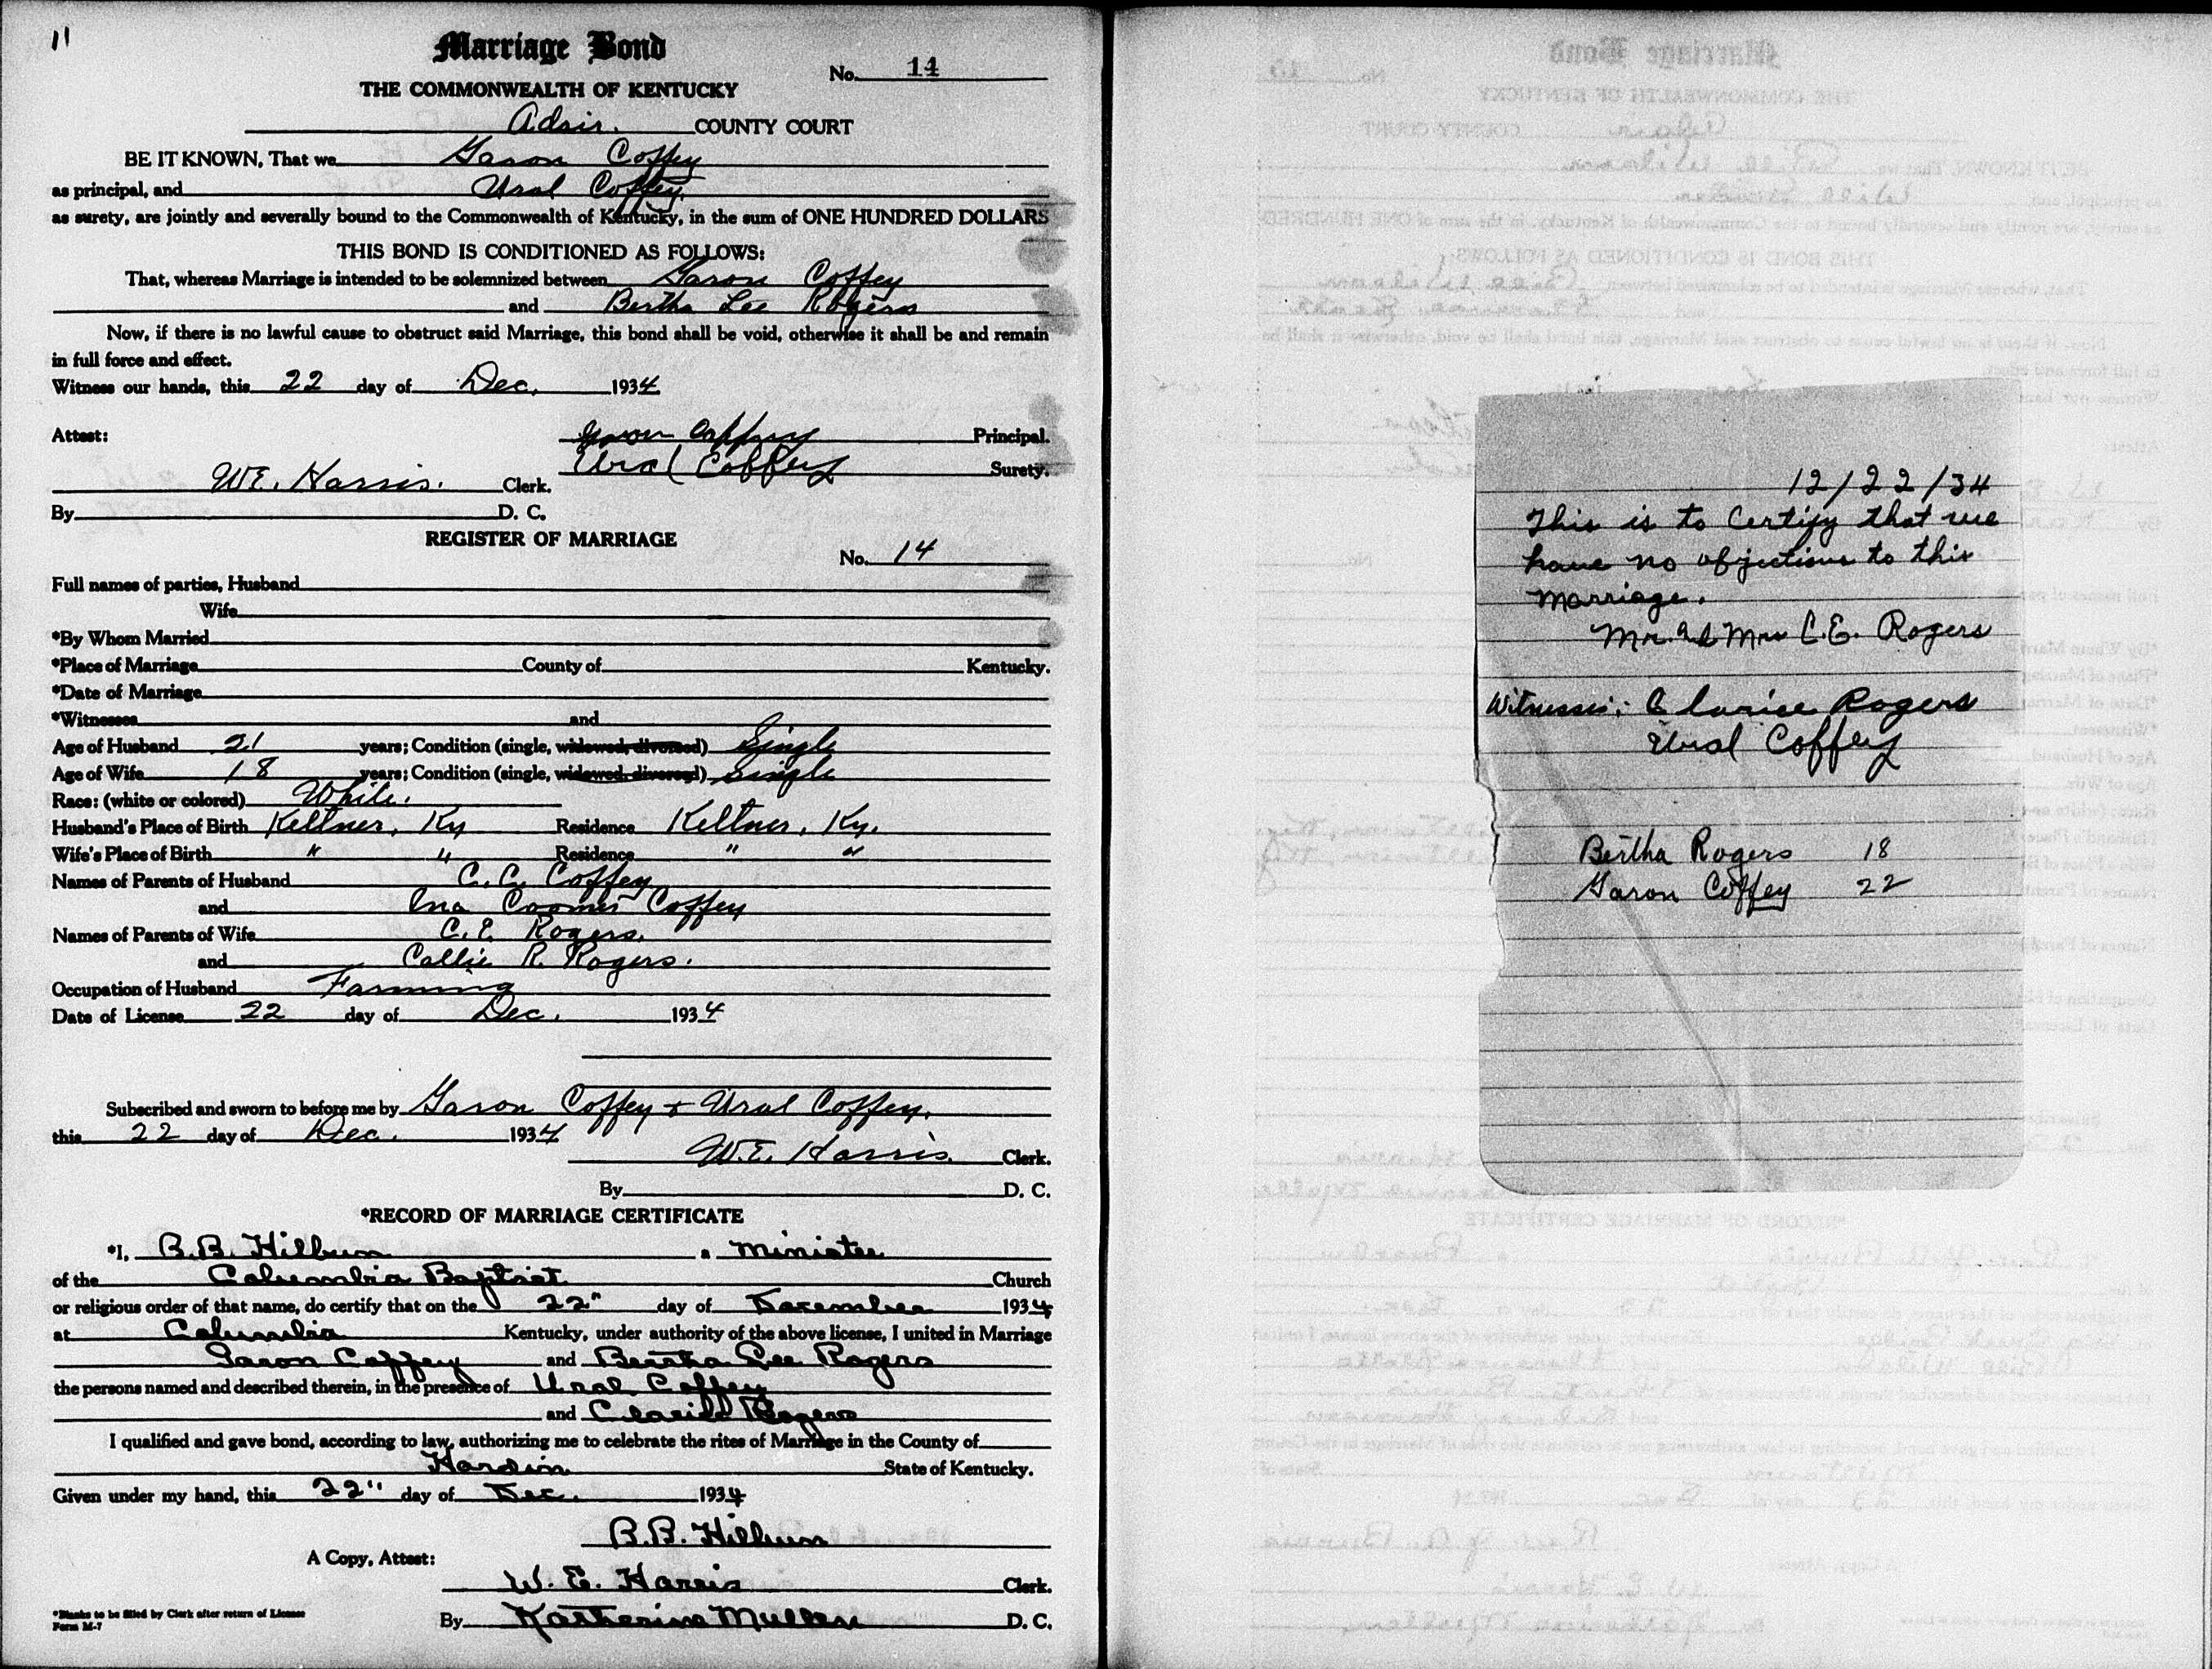 11
Marriage Bond
No. 14
THE COMMONWEALTH OF KENTUCKY
Adair. COUNTY COURT
BE IT KNOWN, That we Garon Coffey
as principal, and Ural Coffey.
as surety, are jointly and severally bound to the Commonwealth of Kentucky, in the sum of ONE HUNDRED DOLLARS
THIS BOND IS CONDITIONED AS FOLLOWS:
That, whereas Marriage is intended to be solemnized between Garon Coffey
and Bertha Lee Rogers
Now, if there is no lawful cause to obstruct said Marriage, this bond shall be void, otherwise it shall be and remain
in full force and effect.
Witness our hands, this 22 day of Dec. 1934
Attest: Garon Coffey Principal.
Ural Coffey Surety.
W.E. Harris. Clerk.
By D. C.
REGISTER OF MARRIAGE
No. 14
Full names of parties, Husband
Wife
*By Whom Married
*Place of Marriage County of Kentucky.
*Date of Marriage
*Witnesses and
Age of Husband 21 years; Condition (single, widowed, divorced) Single
Age of Wife 18 years; Condition (single, widowed, divorced) Single
Race: (white or colored) White.
Husband's Place of Birth Keltner, Ky Residence Keltner, Ky.
Wife's Place of Birth " " Residence " "
Names of Parents of Husband C. C. Coffey
and Ina Coomer Coffey
Names of Parents of Wife C. E. Rogers.
and Callie R. Rogers.
Occupation of Husband Farming
Date of License 22 day of Dec. 1934
Subscribed and sworn to before me by Garon Coffey + Ural Coffey.
this 22 day of Dec. 1934
W.E. Harris Clerk.
By D. C.
*RECORD OF MARRIAGE CERTIFICATE
*I, B.B. Hilbun a Minister
of the Columbia Baptist Church
or religious order of that name, do certify that on the 22" day of December 1934
at Columbia Kentucky, under authority of the above license, I united in Marriage
Garon Coffey and Bertha Lee Rogers
the persons named and described therein, in the presence of Ural Coffey
and Clarice Rogers
I qualified and gave bond, according to law, authorizing me to celebrate the rites of Marriage in the County of
Hardin State of Kentucky.
Given under my hand, this 22" day of Dec. 1934
B.B. Hilbun
A Copy, Attest:
W. E. Harris Clerk.
*Blanks to be filled by Clerk after return of License
Form M-7
By Katherine Mullen D. C.
12/22/34
This is to Certify that we
have no objections to this
Marriage.
Mr. and Mrs C.E. Rogers
Witnesses: Clarice Rogers
Ural Coffey
Bertha Rogers 18
Garon Coffey 22